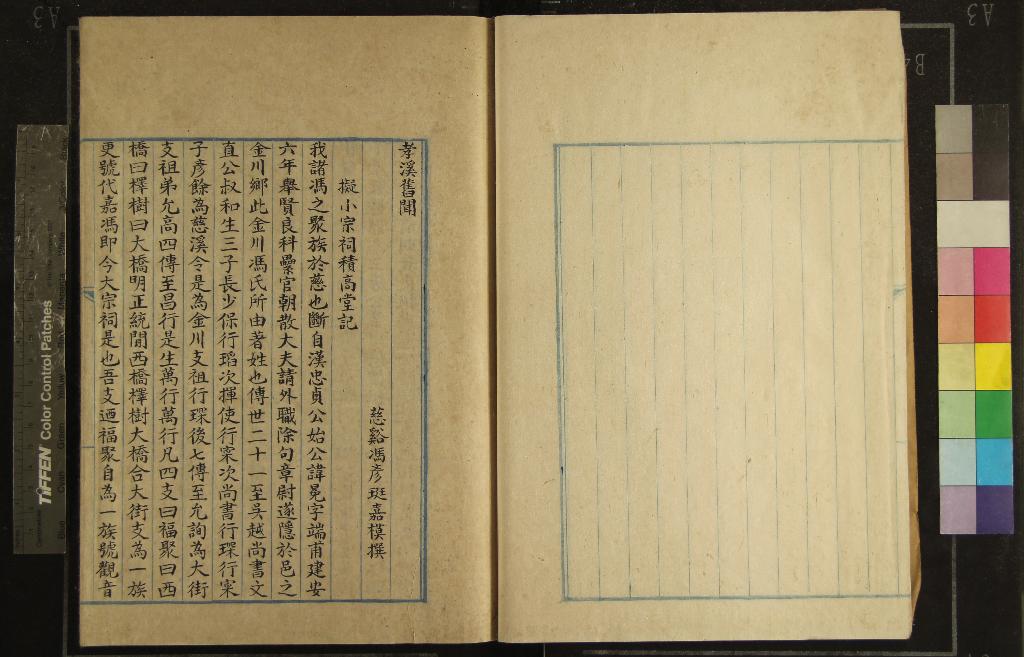 孝溪舊聞
慈谿馮彥珽嘉模撰
擬小宗祠積高堂記
我諸馮之聚族於慈也斷自漢忠貞公始公諱冕字端甫建安
六年舉賢良科纍官朝散大夫請外職除句章尉遂隱於邑之
金川鄉此金川馮氏所由著姓也傳世二十一至吳越尚書文
直公叔和生三子長少保行瑫次揮使行寀次尚書行琛行寀
子彥餘為慈溪令是為金川支祖行琛後七傳至允詢為大街
支祖弟允高四傳至昌行是生萬行萬行凡四支曰福聚曰西
橋曰檡樹曰大橋明正統間西橋檡樹大橋合大街支為一族
更號代嘉馮即今大宗祠是也吾支迺福聚自為一族號觀音
TIFFEN Color Control Patches
A3
A3